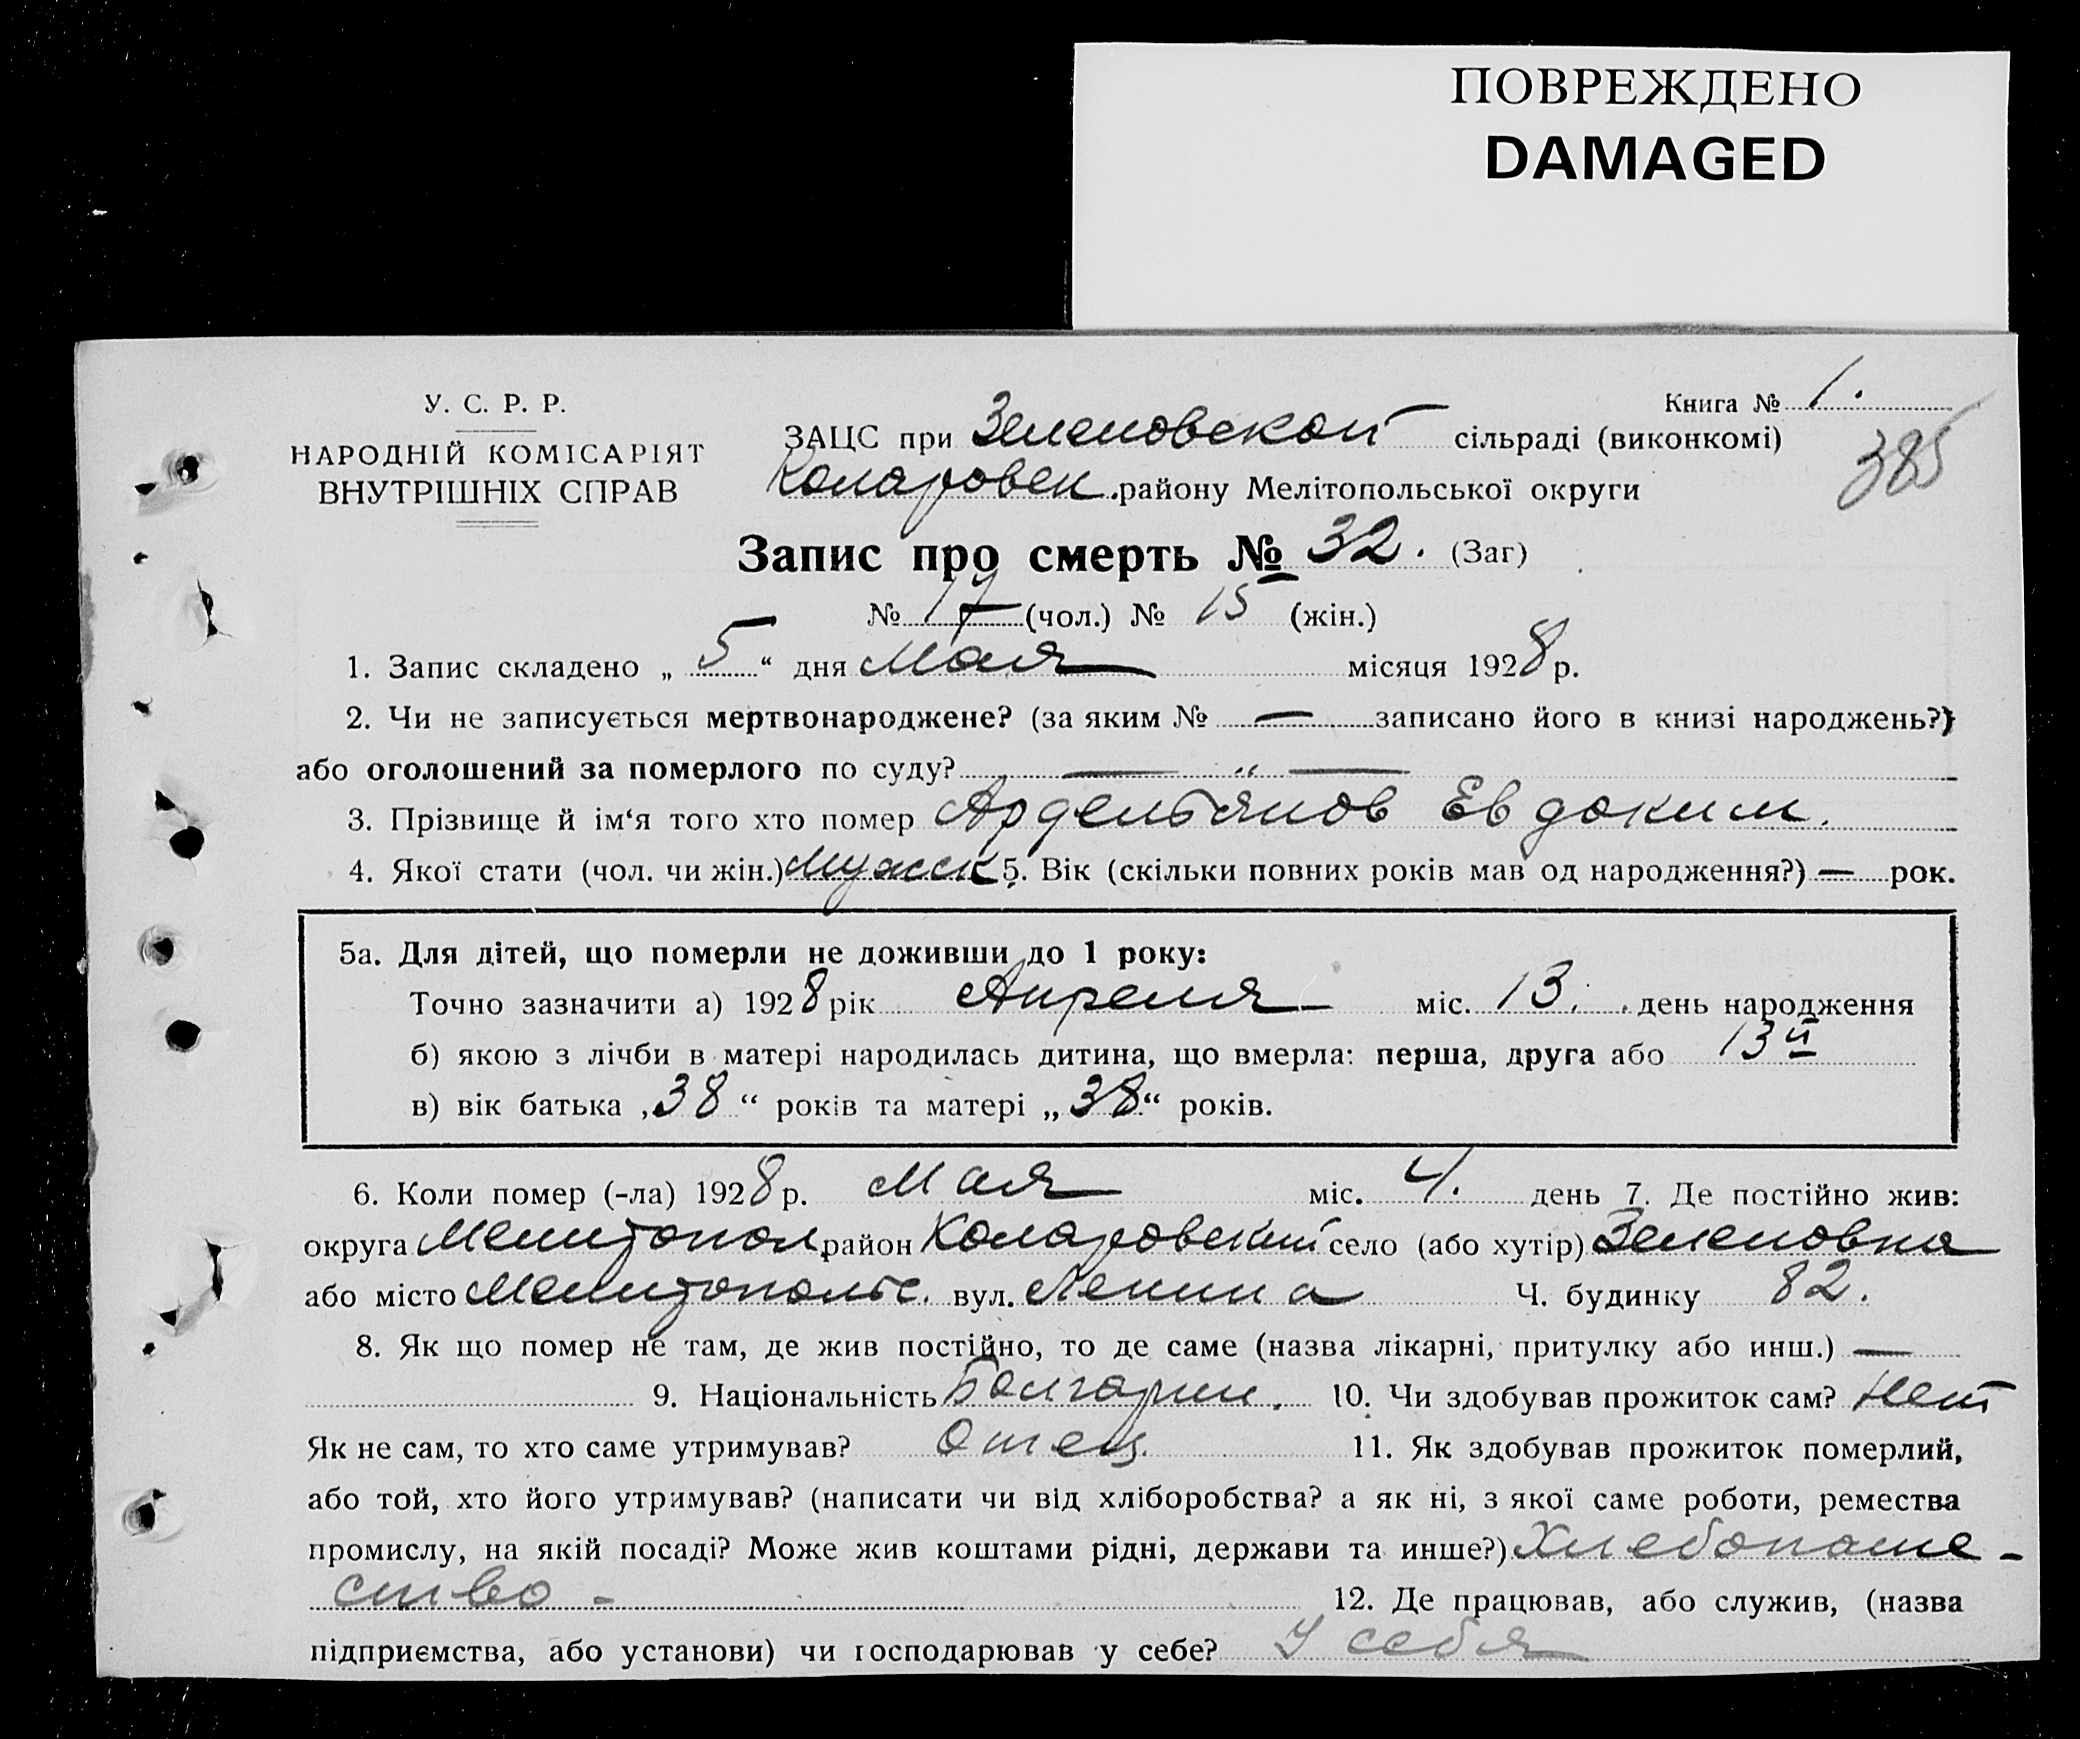 ПОВРЕЖДЕНО
DAMAGED
У. С. Р. Р.
НАРОДНІЙ КОМІСАРІЯТ
ВНУТРІШНІХ СПРАВ
Книга № 1.
385
ЗАЦС при Зеленовской сільраді (виконкомі)
Коларовск. району Мелітопольської округи
Запис про смерть № 32. (Заг)
№ 17 (чол.) № 15 (жін.)
1. Запис складено „ 5 “ дня Мая місяця 1928 р.
2. Чи не записується мертвонароджене? (за яким № — записано його в книзі народжень?)
або оголошений за померлого по суду? — “ —
3. Прізвище й ім‘я того хто помер Ардельянов Евдоким.
4. Якої стати (чол. чи жін.) Мужск 5. Вік (скільки повних років мав од народження?) — рок.
5а. Для дітей, що померли не доживши до 1 року:
Точно зазначити а) 1928 рік Апреля міс. 13. день народження
б) якою з лічби в матері народилась дитина, що вмерла: перша, друга або 13й
в) вік батька „38“ років та матері „38“ років.
6. Коли помер (-ла) 1928 р. Мая міс. 4. день 7. Де постійно жив:
округа Мелитопол. район Коларовский село (або хутір) Зеленовка
або місто Мелитопольс. вул. Ленина Ч. будинку 82.
8. Як що помер не там, де жив постійно, то де саме (назва лікарні, притулку або инш.) —
9. Національність Болгарин. 10. Чи здобував прожиток сам? Нет
Як не сам, то хто саме утримував? Отец. 11. Як здобував прожиток померлий,
або той, хто його утримував? (написати чи від хліборобства? а як ні, з якої саме роботи, ремества
промислу, на якій посаді? Може жив коштами рідні, держави та инше?) Хлебопаше-
ство - 12. Де працював, або служив, (назва
підприємства, або установи) чи господарював у себе? У себя